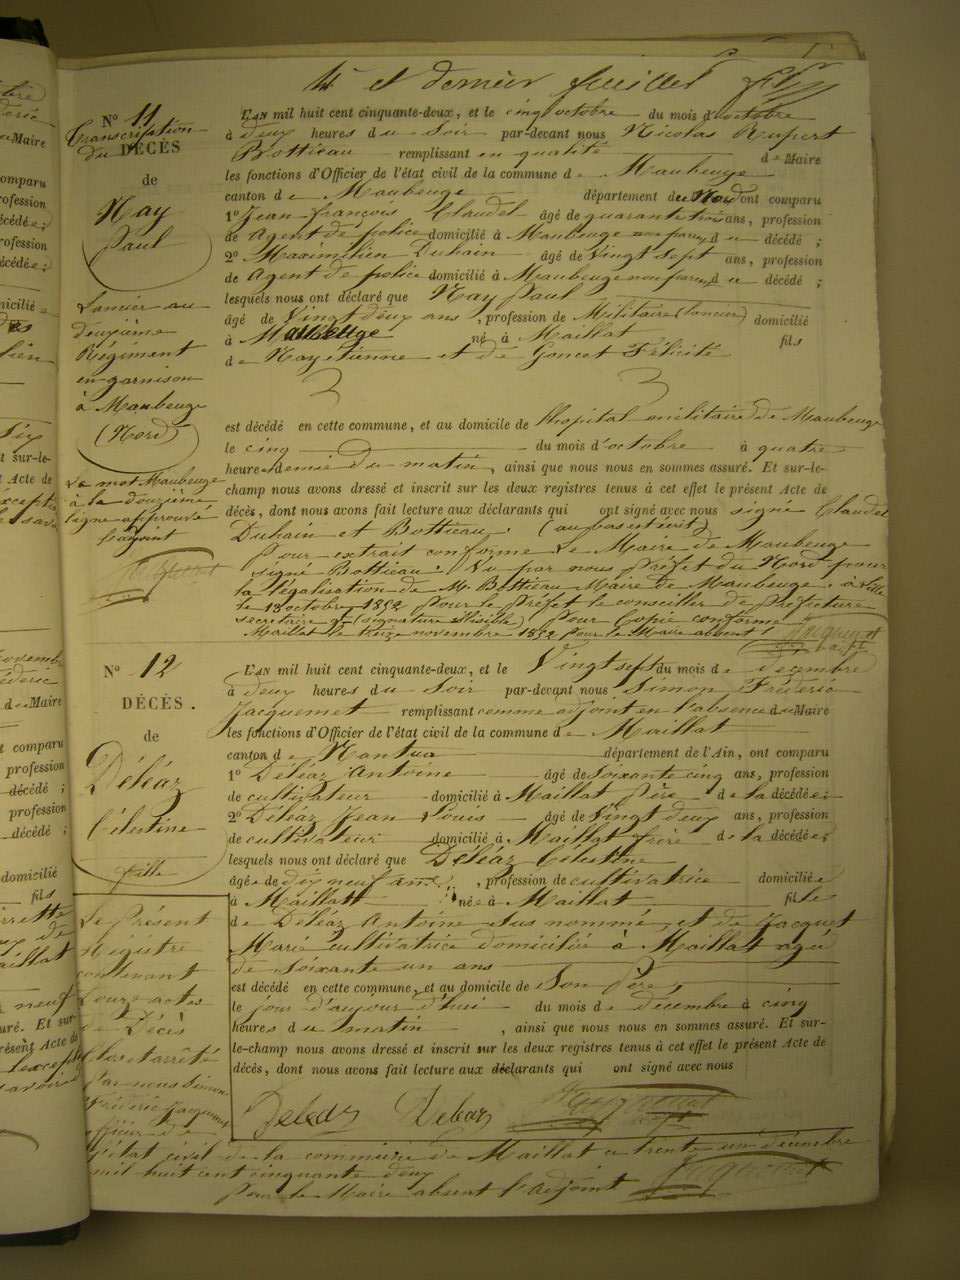 4e et dernier feuillet
N° 11
Transcription
du DÉCÈS
de
Nay
Paul
Lancier au
deuxième
Régiment
en garnison
à Maubeuge
(Nord)
Le mot Maubeuge
à la douzième
ligne approuvé
L'adjoint
L'AN mil huit cent cinquante-deux, et le cinq octobre du mois d'octobre
à deux heures du Soir par-devant nous Nicolas Rupert
Bottieau remplissant en qualité de Maire
les fonctions d'Officier de l'état civil de la commune de Maubeuge
canton de Maubeuge département du Nord ont comparu
1° Jean François Claudel âgé de quarante trois ans, profession
de Agent de police domicilié à Maubeuge non parent du décédé ;
2° Maximilien Duhain âgé de Vingt sept ans, profession
de Agent de police domicilié à Maubeuge non parent du décédé ;
lesquels nous ont déclaré que Nay Paul
âgé de Vingt deux ans, profession de Militaire (lancier) domicilié
à Maubeuge né à Maillat fils
de Nay Etienne et de Goncet Félicité
est décédé en cette commune, et au domicile de l'hopital militaire de Maubeuge
le cinq du mois d'octobre à quatre
heures demie du matin, ainsi que nous nous en sommes assuré. Et sur-le-
champ nous avons dressé et inscrit sur les deux registres tenus à cet effet le présent Acte de
décès, dont nous avons fait lecture aux déclarants qui ont signé avec nous signé Claudel
Duhain et Bottieau. (au bas est écrit)
Pour extrait conforme Le Maire de Maubeuge
signé Bottieau. Vu par nous Préfet du Nord pour
la légalisation de Mr Bottieau Maire de Maubeuge. à Lille
le 13 octobre 1852 Pour le Préfet le conseiller de Préfecture
secrétaire gl (signature illisible) Pour Copie conforme
Maillat le treize novembre 1852 Pour le Maire absent
Jacquemet
N° 12
DÉCÈS.
de
Déléaz
Célestine
fille
L'AN mil huit cent cinquante-deux, et le Vingt sept du mois de decembre
à deux heures du Soir par-devant nous Simon Frédéric
Jacquemet remplissant comme adjoint en l'absence du Maire
les fonctions d'Officier de l'état civil de la commune de Maillat
canton de Nantua département de l'Ain, ont comparu
1° Déléaz Antoine âgé de Soixante cinq ans, profession
de cultivateur domicilié à Maillat Père de la décédée ;
2° Déléaz Jean Louis âgé de Vingt deux ans, profession
de cultivateur domicilié à Maillat frère de la décédée ;
lesquels nous ont déclaré que Déléaz Célestine
âgée de dix neuf ans, profession de cultivatrice domiciliée
à Maillat née à Maillat fille
de Déléaz Antoine sus nommé, et de Jacquet
Marie cultivatrice domiciliée à Maillat agée
de soixante un ans
est décédé en cette commune, et au domicile de Son Père,
le jour d'aujour d'hui du mois de décembre à cinq
heures du matin, ainsi que nous nous en sommes assuré. Et sur-
le-champ nous avons dressé et inscrit sur les deux registres tenus à cet effet le présent Acte de
décès, dont nous avons fait lecture aux déclarants qui ont signé avec nous
Deleaz Deleaz Jacquemet
Le Présent
Registre
contenant
Douze actes
de Décès
Clos et arrêté
Par nous Simon
Frédéric Jacquemet
officier de
l'état civil de la commune de Maillat ce trente un décembre
mil huit cent cinquante deux
Pour le Maire absent l'adjoint Jacquemet